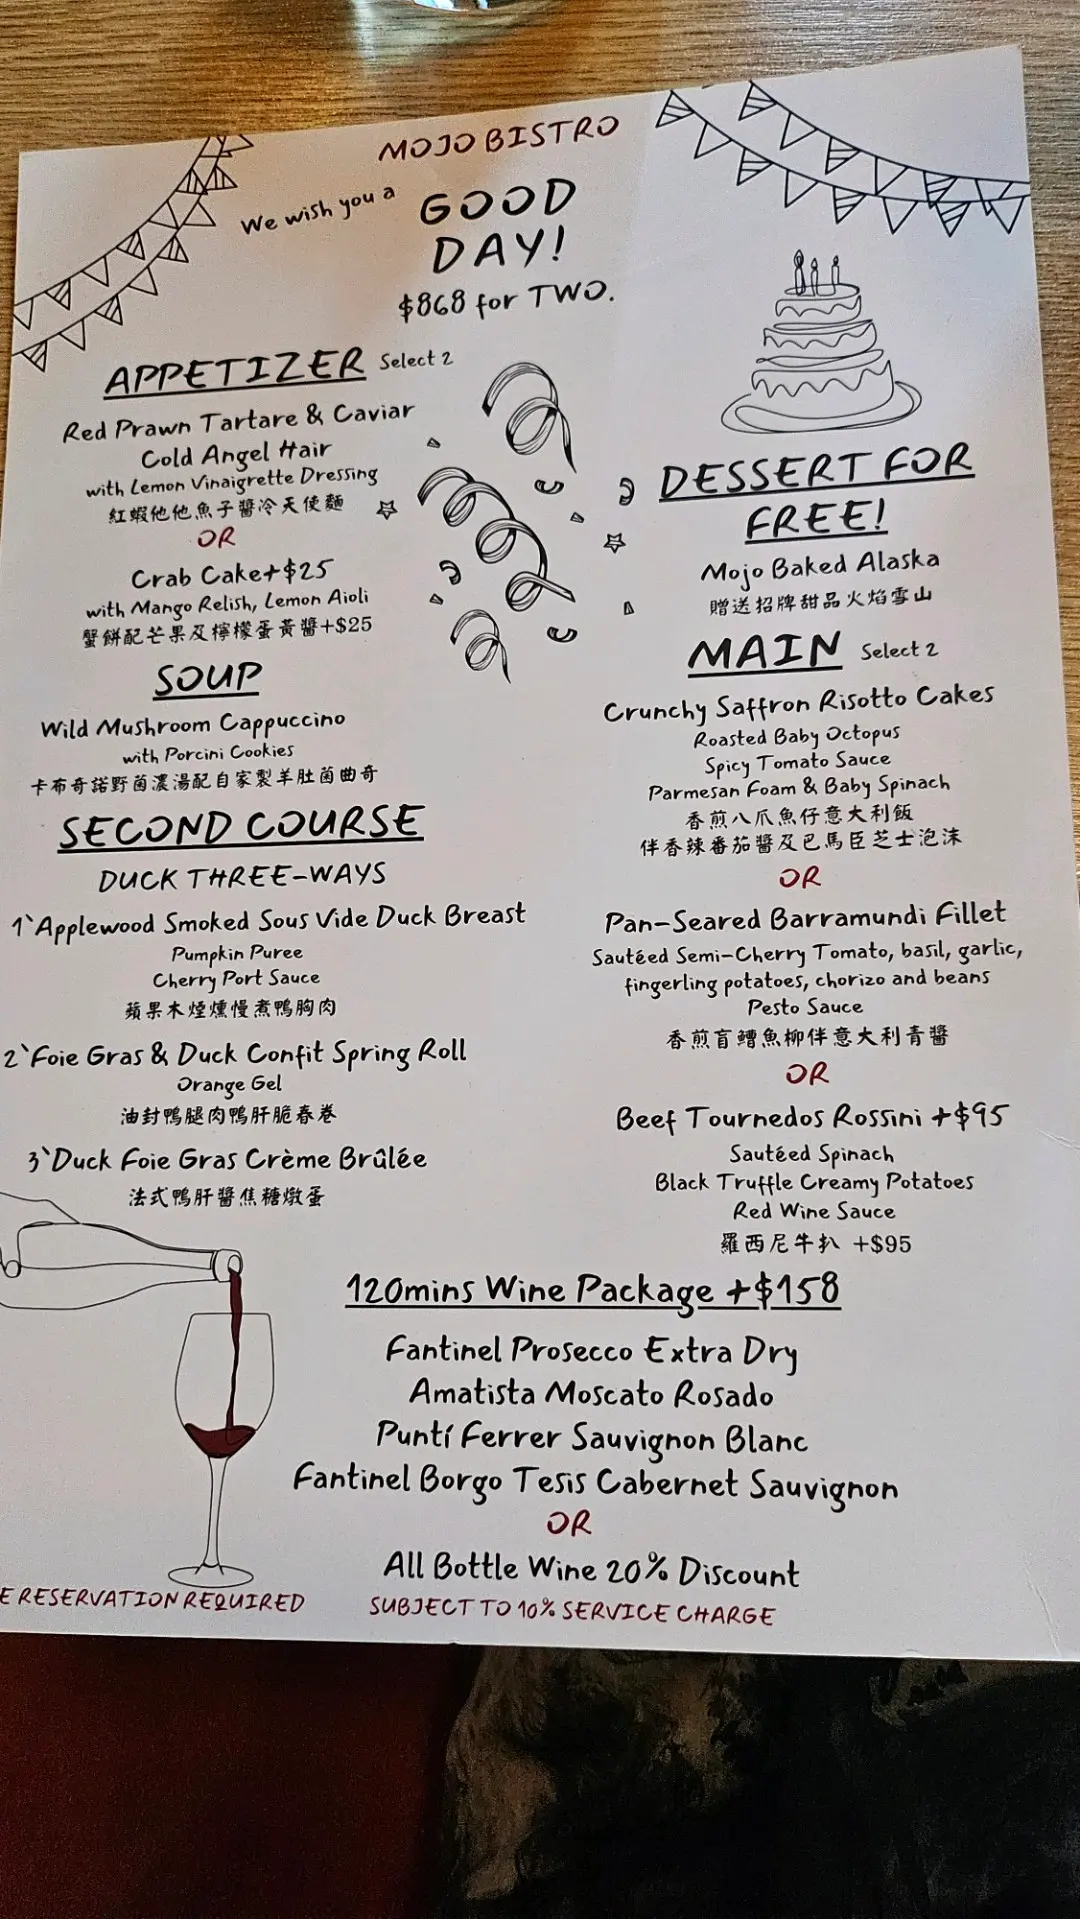 MOJO BISTRO
We wish you a
GOOD
DAY!
$868 for TWO.
APPETIZER Select 2
Red Prawn Tartare & Caviar
Cold Angel Hair
with Lemon Vinaigrette Dressing
紅蝦他他魚子醬冷天使麵
OR
Crab Cake+$25
with Mango Relish, Lemon Aioli
蟹餅配芒果及檸檬蛋黃醬+$25
SOUP
Wild Mushroom Cappuccino
with Porcini Cookies
卡布奇諾野菌濃湯配自家製羊肚菌曲奇
SECOND COURSE
DUCK THREE-WAYS
1`Applewood Smoked Sous Vide Duck Breast
Pumpkin Puree
Cherry Port Sauce
蘋果木煙燻慢煮鴨胸肉
2`Foie Gras & Duck Confit Spring Roll
Orange Gel
油封鴨腿肉鴨肝脆春卷
3`Duck Foie Gras Crème Brûlée
法式鴨肝醬焦糖燉蛋
DESSERT FOR
FREE!
Mojo Baked Alaska
贈送招牌甜品火焰雪山
MAIN Select 2
Crunchy Saffron Risotto Cakes
Roasted Baby Octopus
Spicy Tomato Sauce
Parmesan Foam & Baby Spinach
香煎八爪魚仔意大利飯
伴香辣番茄醬及巴馬臣芝士泡沫
OR
Pan-Seared Barramundi Fillet
Sautéed Semi-Cherry Tomato, basil, garlic,
fingerling potatoes, chorizo and beans
Pesto Sauce
香煎盲鰽魚柳伴意大利青醬
OR
Beef Tournedos Rossini +$95
Sautéed Spinach
Black Truffle Creamy Potatoes
Red Wine Sauce
羅西尼牛扒 +$95
120mins Wine Package +$158
Fantinel Prosecco Extra Dry
Amatista Moscato Rosado
Puntí Ferrer Sauvignon Blanc
Fantinel Borgo Tesis Cabernet Sauvignon
OR
All Bottle Wine 20% Discount
E RESERVATION REQUIRED
SUBJECT TO 10% SERVICE CHARGE